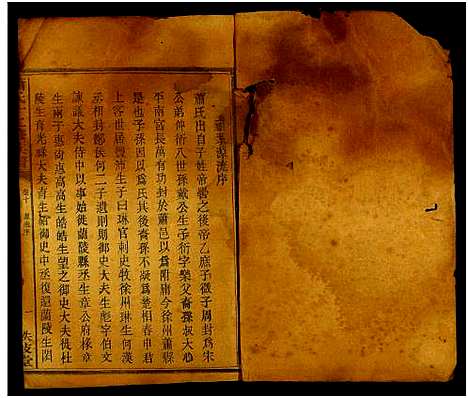 源流序
蕭氏出自子姓帝嚳之後帝乙庶子微子周封為宋
公弟仲衍八世孫戴公生子衍字樂父裔孫叔大心
平南宮長萬有功封於蕭邑以為附庸今徐州蕭縣
是也子孫因以為氏其後裔孫不疑為楚相春申君
上客世居豐沛生子曰琳官刺史牧徐州琳生何漢
丞相封酇侯何二子遺則則御史大夫生彪字伯文
諫議大夫侍中以事始徙蘭陵縣丞生章公府椽章
生兩子惠尚惠高高生皓皓生望之御史大夫徙杜
陵生育光祿大夫育生紹御史中丞復還蘭陵生閎
源流序
一